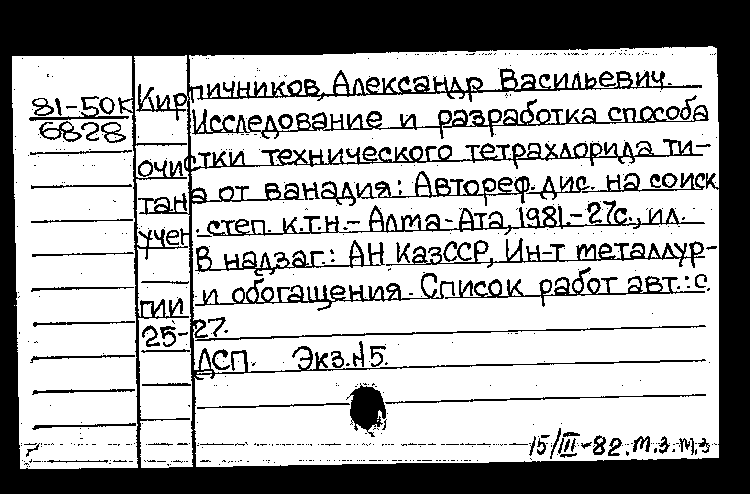 81-50К
6828
Кирпичников, Александр Васильевич.
Исследование и разработка способа
очистки технического тетрахлорида ти-
тана от ванадия: Автореф. дис. на соиск.
учен. степ. к.т.н. - Алма-Ата, 1981. - 27с., ил.
В надзаг.: АН КазССР, Ин-т металлур-
гии и обогащения. Список работ авт.: с.
25-27.
ДСП. Экз. №5.
15/III-82. т.з. м.з